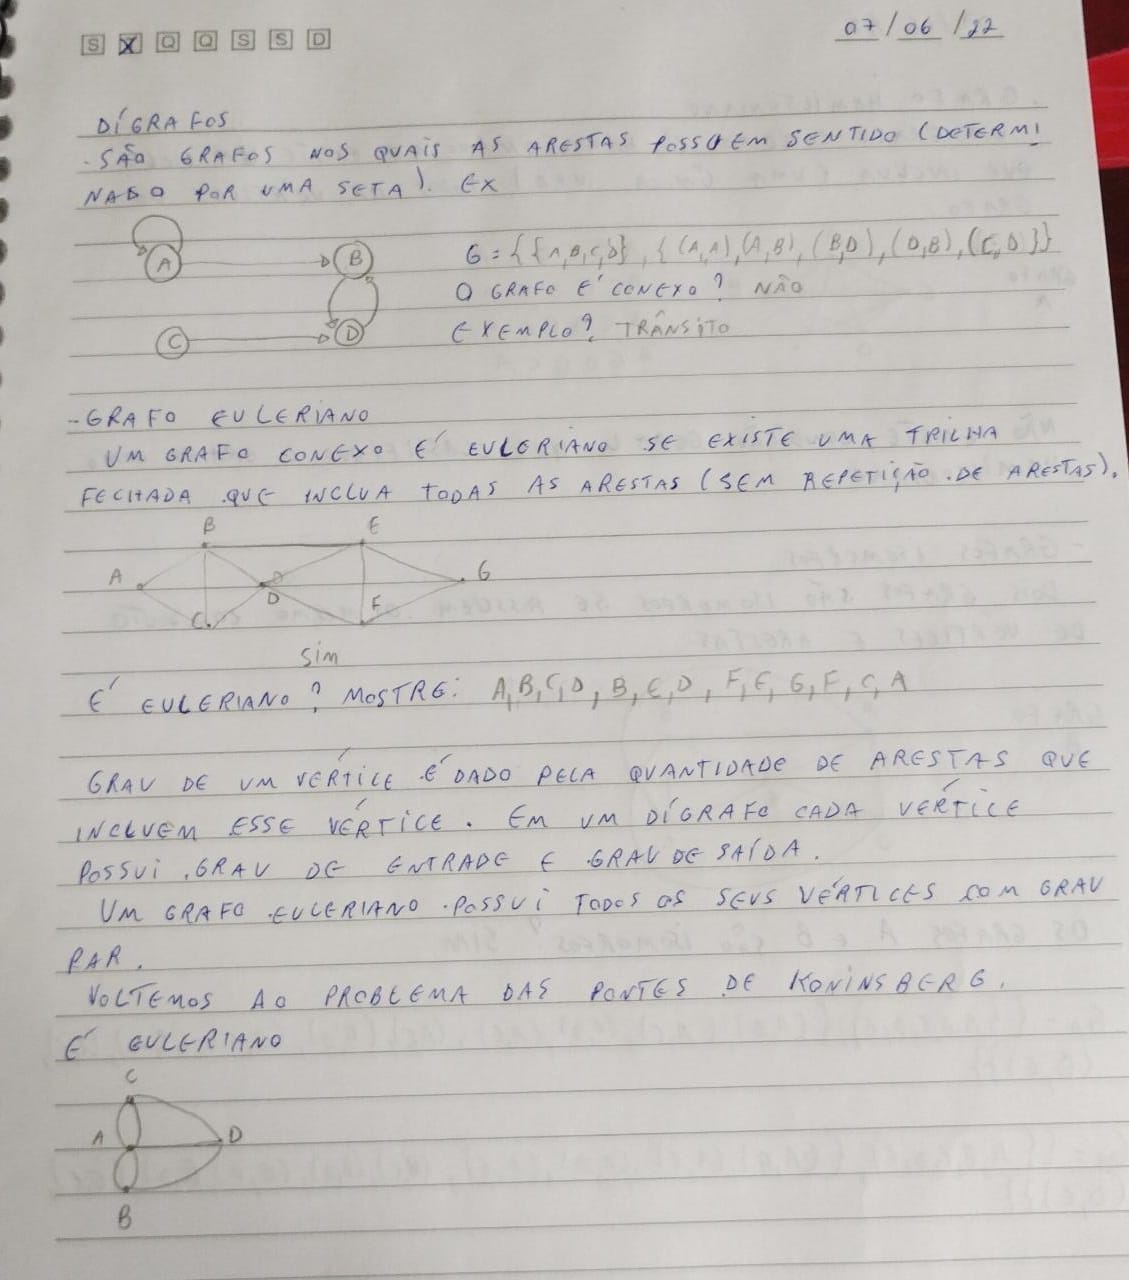 S X Q Q S S D
07/06/22
DÍGRAFOS
- SÃO GRAFOS NOS QUAIS AS ARESTAS POSSUEM SENTIDO (DETERMI
NADO POR UMA SETA). EX
A B G = {{A,B,C,D}, {(A,A),(A,B),(B,D),(D,B),(C,D)}}
O GRAFO É CONEXO? NÃO
C D EXEMPLO? TRÂNSITO
- GRAFO EULERIANO
UM GRAFO CONEXO É EULERIANO SE EXISTE UMA TRILHA
FECHADA QUE INCLUA TODAS AS ARESTAS (SEM REPETIÇÃO DE ARESTAS).
B E
A G
D
C F
SIM
É EULERIANO? MOSTRE: A,B,C,D,B,E,D,F,E,G,F,C,A
GRAU DE UM VÉRTICE É DADO PELA QUANTIDADE DE ARESTAS QUE
INCLUEM ESSE VÉRTICE. EM UM DÍGRAFO CADA VÉRTICE
POSSUI GRAU DE ENTRADE E GRAU DE SAÍDA.
UM GRAFO EULERIANO POSSUI TODOS OS SEUS VÉRTICES COM GRAU
PAR.
VOLTEMOS AO PROBLEMA DAS PONTES DE KONINSBERG.
É EULERIANO
C
A D
B